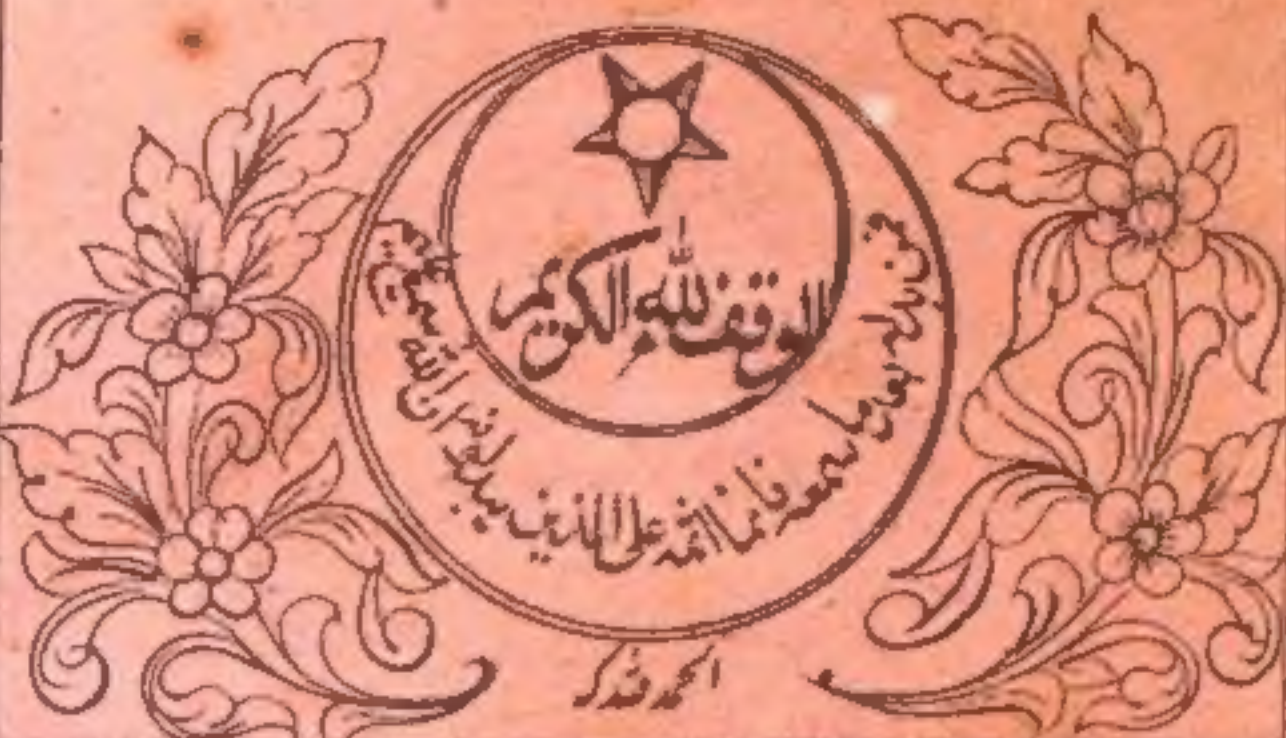 الوقف لله الكريم
فمن بدله بعد ما سمعه فإنما اثمه على الذين يبدلونه ان الله سميع عليم